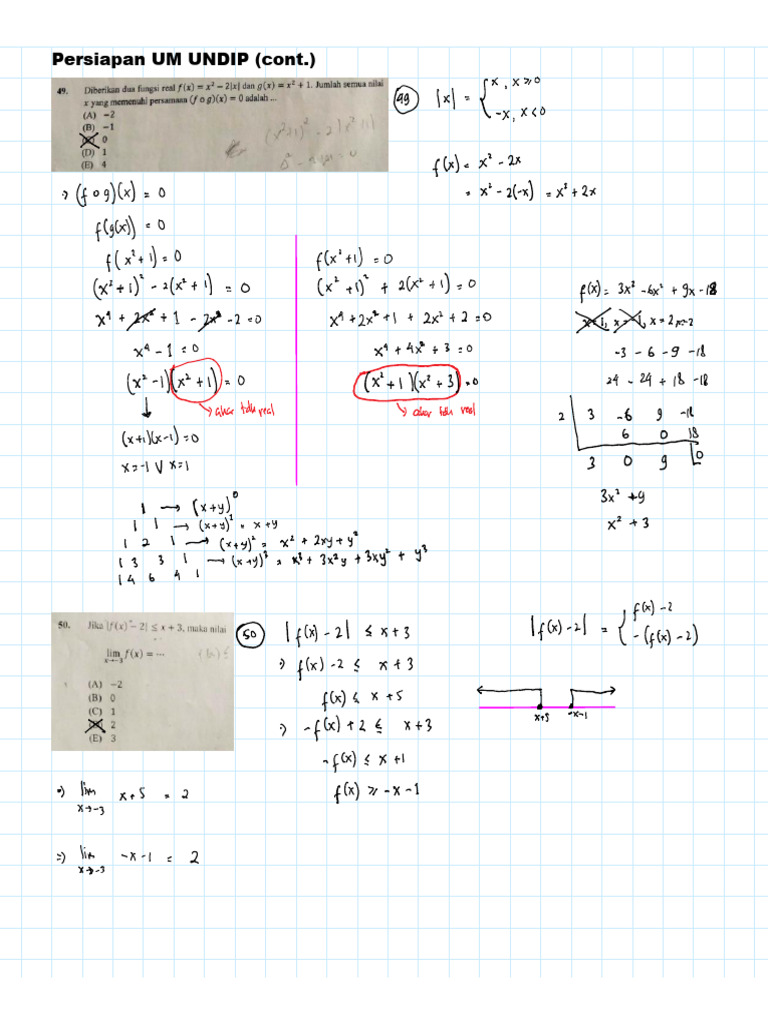 Persiapan UM UNDIP (cont.)
49. Diberikan dua fungsi real f(x) = x² − 2|x| dan g(x) = x² + 1. Jumlah semua nilai
x yang memenuhi persamaan (f o g)(x) = 0 adalah ...
(A) −2
(B) −1
0
(D) 1
(E) 4
49
|x| = { x , x ≥ 0
-x , x < 0
f(x) = x² - 2x
= x² - 2(-x) = x² + 2x
(f o g)(x) = 0
f(g(x)) = 0
f(x² + 1) = 0
(x² + 1)² - 2(x² + 1) = 0
x⁴ + 2x² + 1 - 2x² - 2 = 0
x⁴ - 1 = 0
(x² - 1)(x² + 1) = 0
→ akar tdk real
(x+1)(x-1) = 0
x = -1 V x = 1
f(x² + 1) = 0
(x² + 1)² + 2(x² + 1) = 0
x⁴ + 2x² + 1 + 2x² + 2 = 0
x⁴ + 4x² + 3 = 0
(x² + 1)(x² + 3) = 0
→ akar tdk real
-3 - 6 - 9 - 18
24 - 24 + 18 - 18
2 | 3 -6 9 -18
6 0 18
3 0 9 | 0
3x² + 9
x² + 3
1 → (x+y)⁰
1 1 → (x+y)¹ = x + y
1 2 1 → (x+y)² = x² + 2xy + y²
1 3 3 1 → (x+y)³ = x³ + 3x²y + 3xy² + y³
1 4 6 4 1
50. Jika |f(x) − 2| ≤ x + 3, maka nilai
lim f(x) = ...
x→−3
(A) −2
(B) 0
(C) 1
2
(E) 3
50
|f(x) - 2| ≤ x + 3
f(x) - 2 ≤ x + 3
f(x) ≤ x + 5
-f(x) + 2 ≤ x + 3
-f(x) ≤ x + 1
f(x) ≥ -x - 1
|f(x) - 2| = { f(x) - 2
-(f(x) - 2)
-x-1
lim x + 5 = 2
x→-3
lim -x - 1 = 2
x→-3